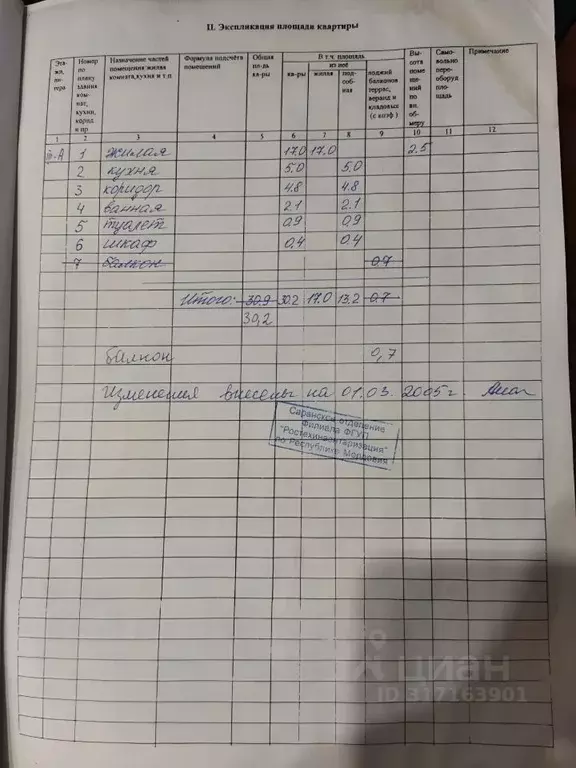 II. Экспликация площади квартиры
Эта-жи, ли-тера
Номер по плану здания ком-нат, кухни, корид и пр
Назначение частей помещения жилая комната, кухня и т.п
Формула подсчёта помещений
Общая пл-дь кв-ры
В т.ч площадь
кв-ры
из неё
жилая
под-соб-ная
лоджий балконов террас, веранд и кладовых (с коэф )
Вы-сота поме ще-ний по вн. об-меру
Само-вольно пере-оборуд пло-щадь
Примечание
1 2 3 4 5 6 7 8 9 10 11 12
1 жилая 17.0 17.0 2.5
2 кухня 5.0 5.0
3 коридор 4.8 4.8
4 ванная 2.1 2.1
5 туалет 0.9 0.9
6 шкаф 0.4 0.4
7 балкон 0.7
Итого: 30.9 30.2 17.0 13.2 0.7
30,2
балкон 0,7
Изменения внесены на 01.03. 2005 г.
Саранское отделение
Филиала ФГУП
"Ростехинвентаризация"
по Республике Мордовия
циан
ID 317163901